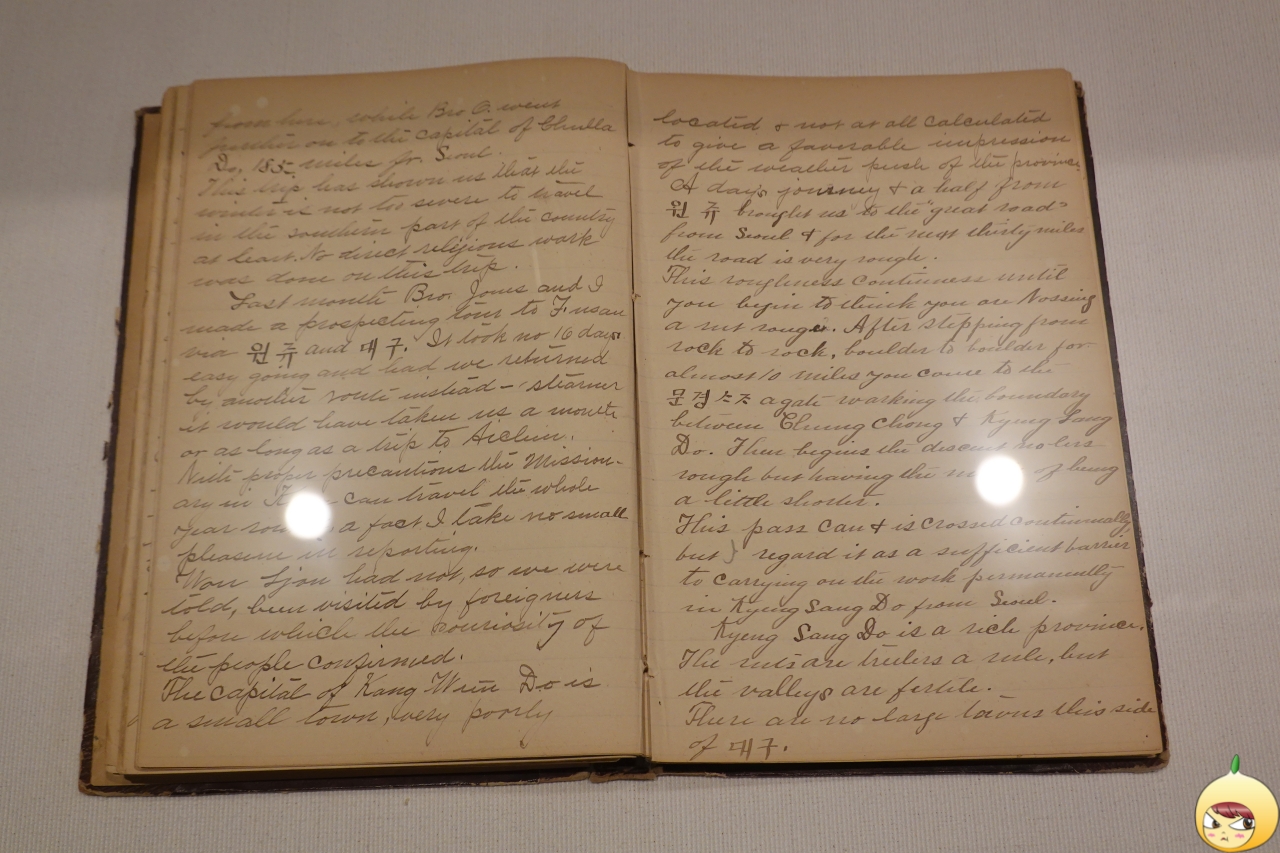 from here, while Bro O. went
further on to the capital of Chulla
Do, 185 miles fr. Seoul.
This trip has shown us that the
winter is not too severe to travel
in the southern part of the country
at least. No direct religious work
was done on this trip.
Last month Bro. Jones and I
made a prospecting tour to Fusan
via 원쥬 and 대구. It took no 16 days
easy going and had we returned
by another route instead – steamer
it would have taken us a month
or as long as a trip to Aichiu.
With proper precautions the Mission-
ary in can travel the whole
year a fact I take no small
pleasure in reporting.
Won Tjou had not, so we were
told, been visited by foreigners
before which the couriosity of
the people confirmed.
The capital of Kang Wun Do is
a small town, very poorly
located & not at all calculated
to give a favorable impression
of the weather push of the province
A day's journey & a half from
원쥬 brought us to the "great road"
from Seoul & for the next thirty miles
the road is very rough.
This roughness continuess until
you begin to think you are
a After stepping from
rock to rock, boulder to boulder for
almost 10 miles you come to the
문경 a gate marking the boundary
between Chung Chong & Kyeng Sang
Do. Then begins the descent no less
rough but having the of being
a little shorter.
This pass can & is crossed continually,
but I regard it as a sufficient barrier
to carrying on the work permanently
in Kyeng Sang Do from Seoul.
Kyeng Sang Do is a rich province.
The are a rule, but
the valleys are fertile.
There are no large towns this side
of 대구.